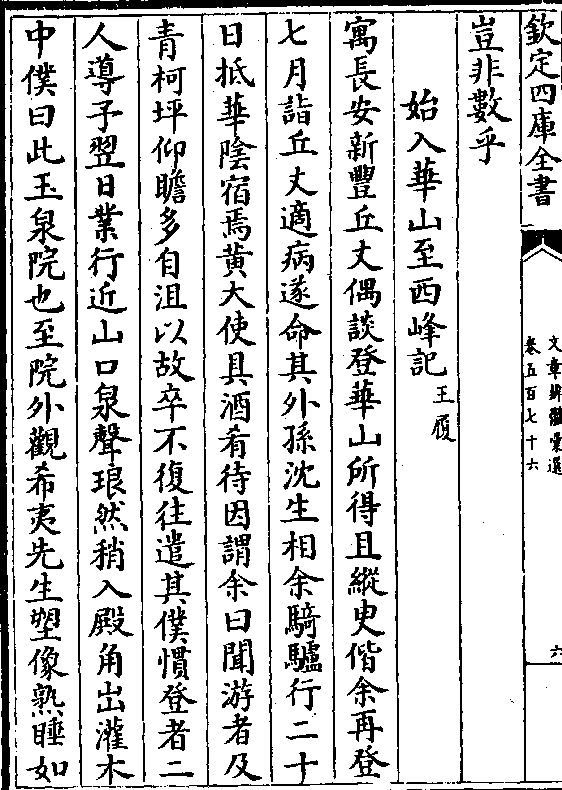 欽定四庫全書
文章辨體彙選
卷五百七十六
六
豈非數乎
始入華山至西峰記王履
寓長安新豐丘丈偶談登華山所得且縱臾偕余再登
七月詣丘丈適病遂命其外孫沈生相余騎驢行二十
日抵華陰宿焉黃大使具酒肴待因謂余曰聞游者及
青柯坪仰瞻多自沮以故卒不復往遣其僕慣登者二
人導予翌日業行近山口泉聲琅然稍入殿角出灌木
中僕曰此玉泉院也至院外觀希夷先生塑像熟睡如